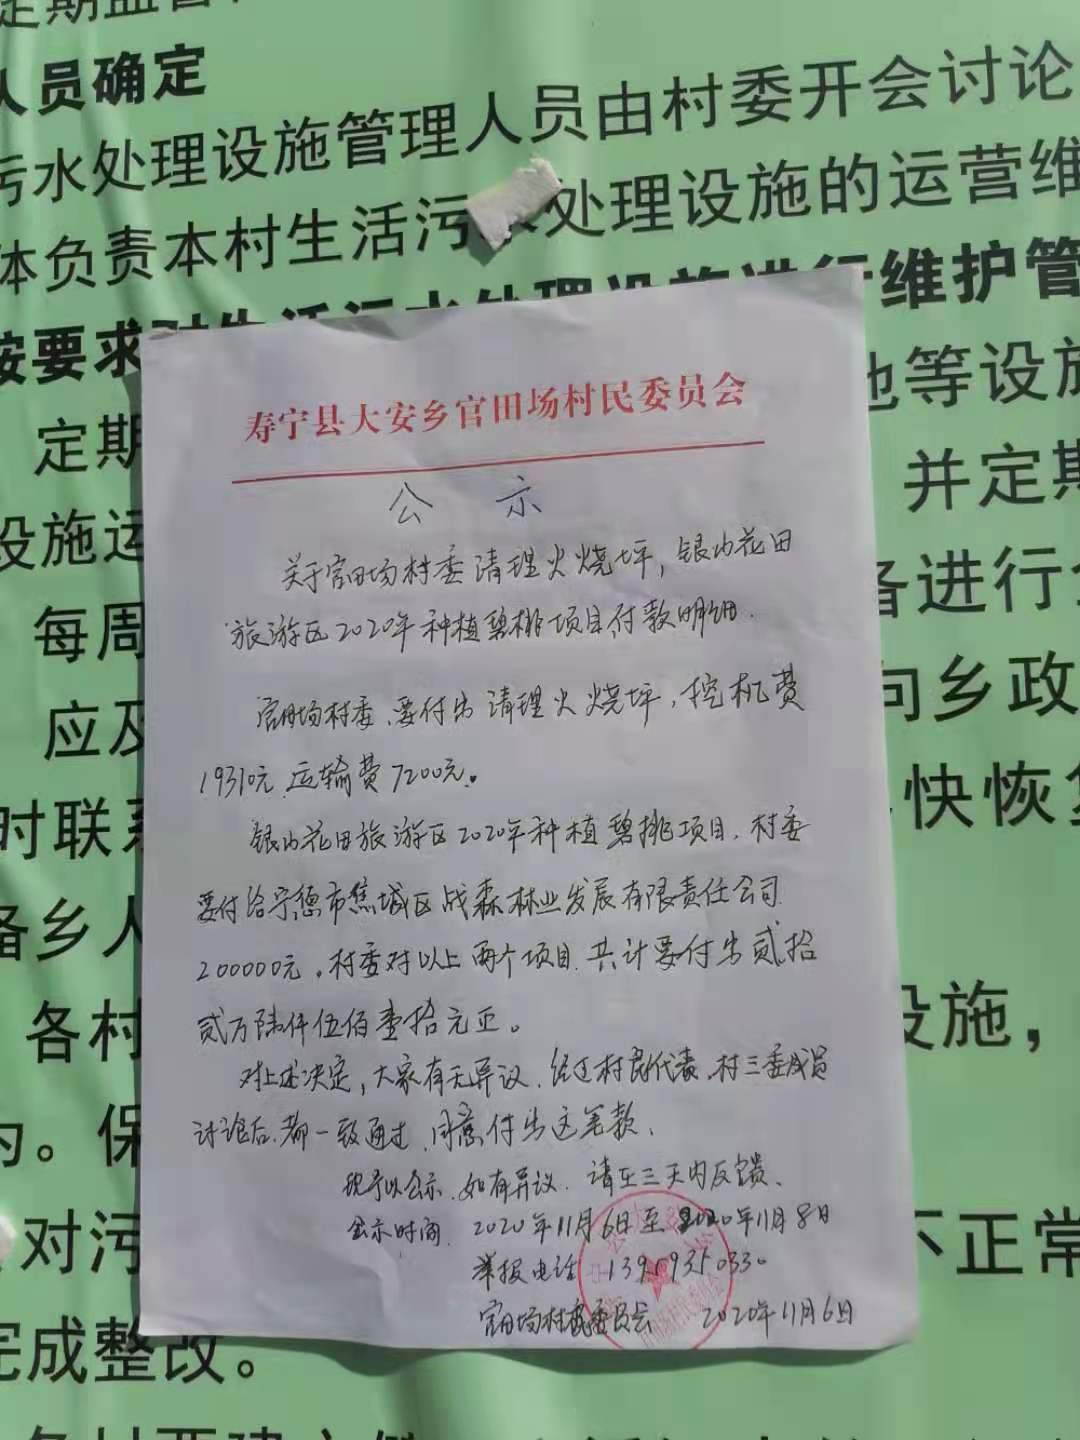 人员确定
污水处理设施管理人员由村委开会讨论
体负责本村生活污水处理设施的运营维
按要求对生活污水处理设施进行维护管
池等设施
定期
并定期
设施运
备进行
每周
向乡政
应及
快恢复
时联系
备乡人
各村
设施，
为。保
对污
不正常
完成整改。
寿宁县大安乡官田场村民委员会
公示
关于官田场村委清理火烧坪，银山花田
旅游区2020年种植碧桃项目付款明细.
官田场村委，要付出清理火烧坪，挖机费
19310元，运输费7200元。
银山花田旅游区2020年种植碧桃项目，村委
要付给宁德市蕉城区战森林业发展有限责任公司
200000元。村委对以上两个项目，共计要付出贰拾
贰万陆仟伍佰壹拾元正。
对上述决定，大家有无异议，经过村民代表，村三委成员
讨论后，都一致通过，同意付出这笔款、
现予以公示，如有异议，请在三天内反馈、
公示时间 2020年11月6日至2020年11月8日
举报电话 13959350330
官田场村民委员会 2020年11月6日